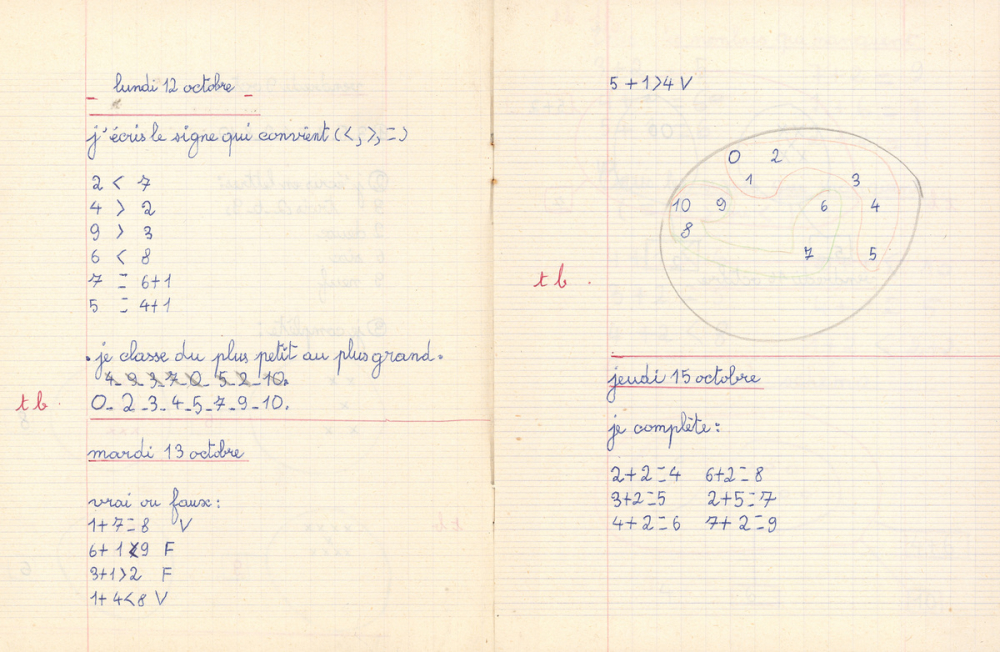 lundi 12 octobre
j'écris le signe qui convient (<, >, =)
2 < 7
4 > 2
9 > 3
6 < 8
7 = 6+1
5 = 4+1
. je classe du plus petit au plus grand.
4_9_3_7_0_5_2_10.
t b 0_2_3_4_5_7_9_10.
mardi 13 octobre
vrai ou faux:
1+7=8 V
6+1 9 F
3+1>2 F
1+4<8 V
5+1>4 V
0 2
1 3
10 9 6 4
8
7 5
t b .
jeudi 15 octobre
je complète:
2+2=4 6+2=8
3+2=5 2+5=7
4+2=6 7+2=9